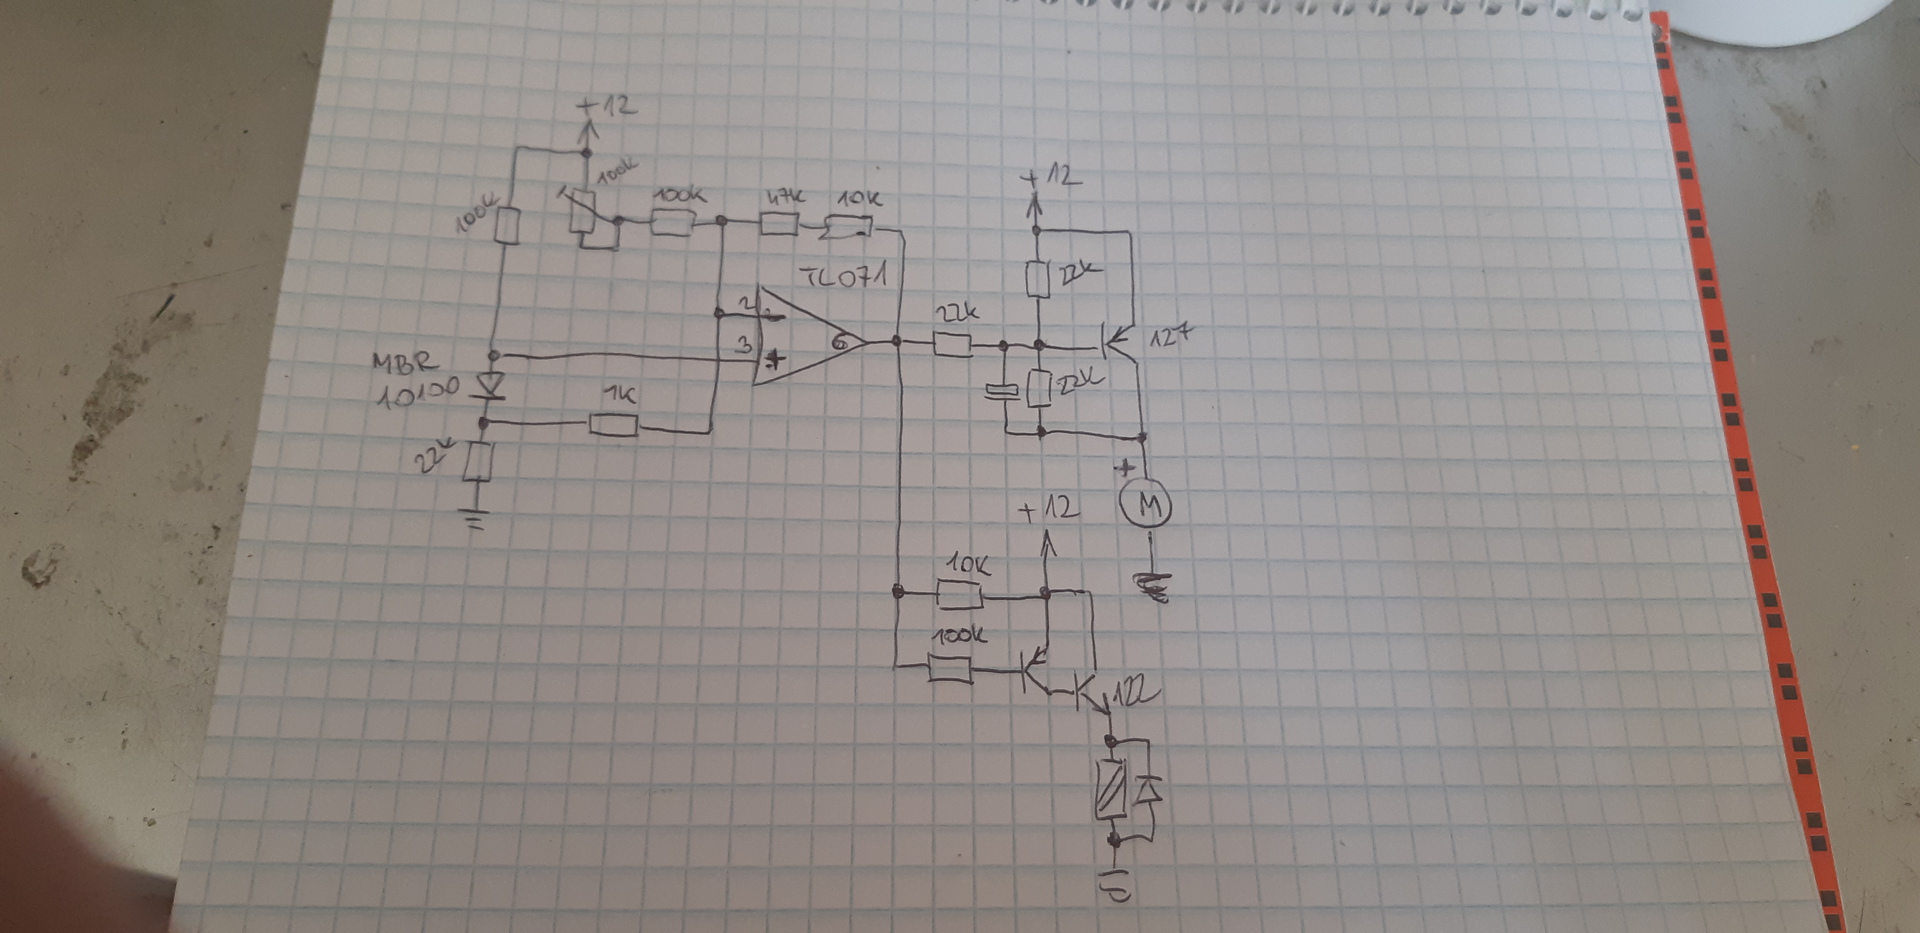 +12
100K
100K
100K
47K
10K
+12
TL071
22K
22K
2
-
3
+
6
127
MBR
10100
1K
22K
22K
+
M
+12
10K
100K
122